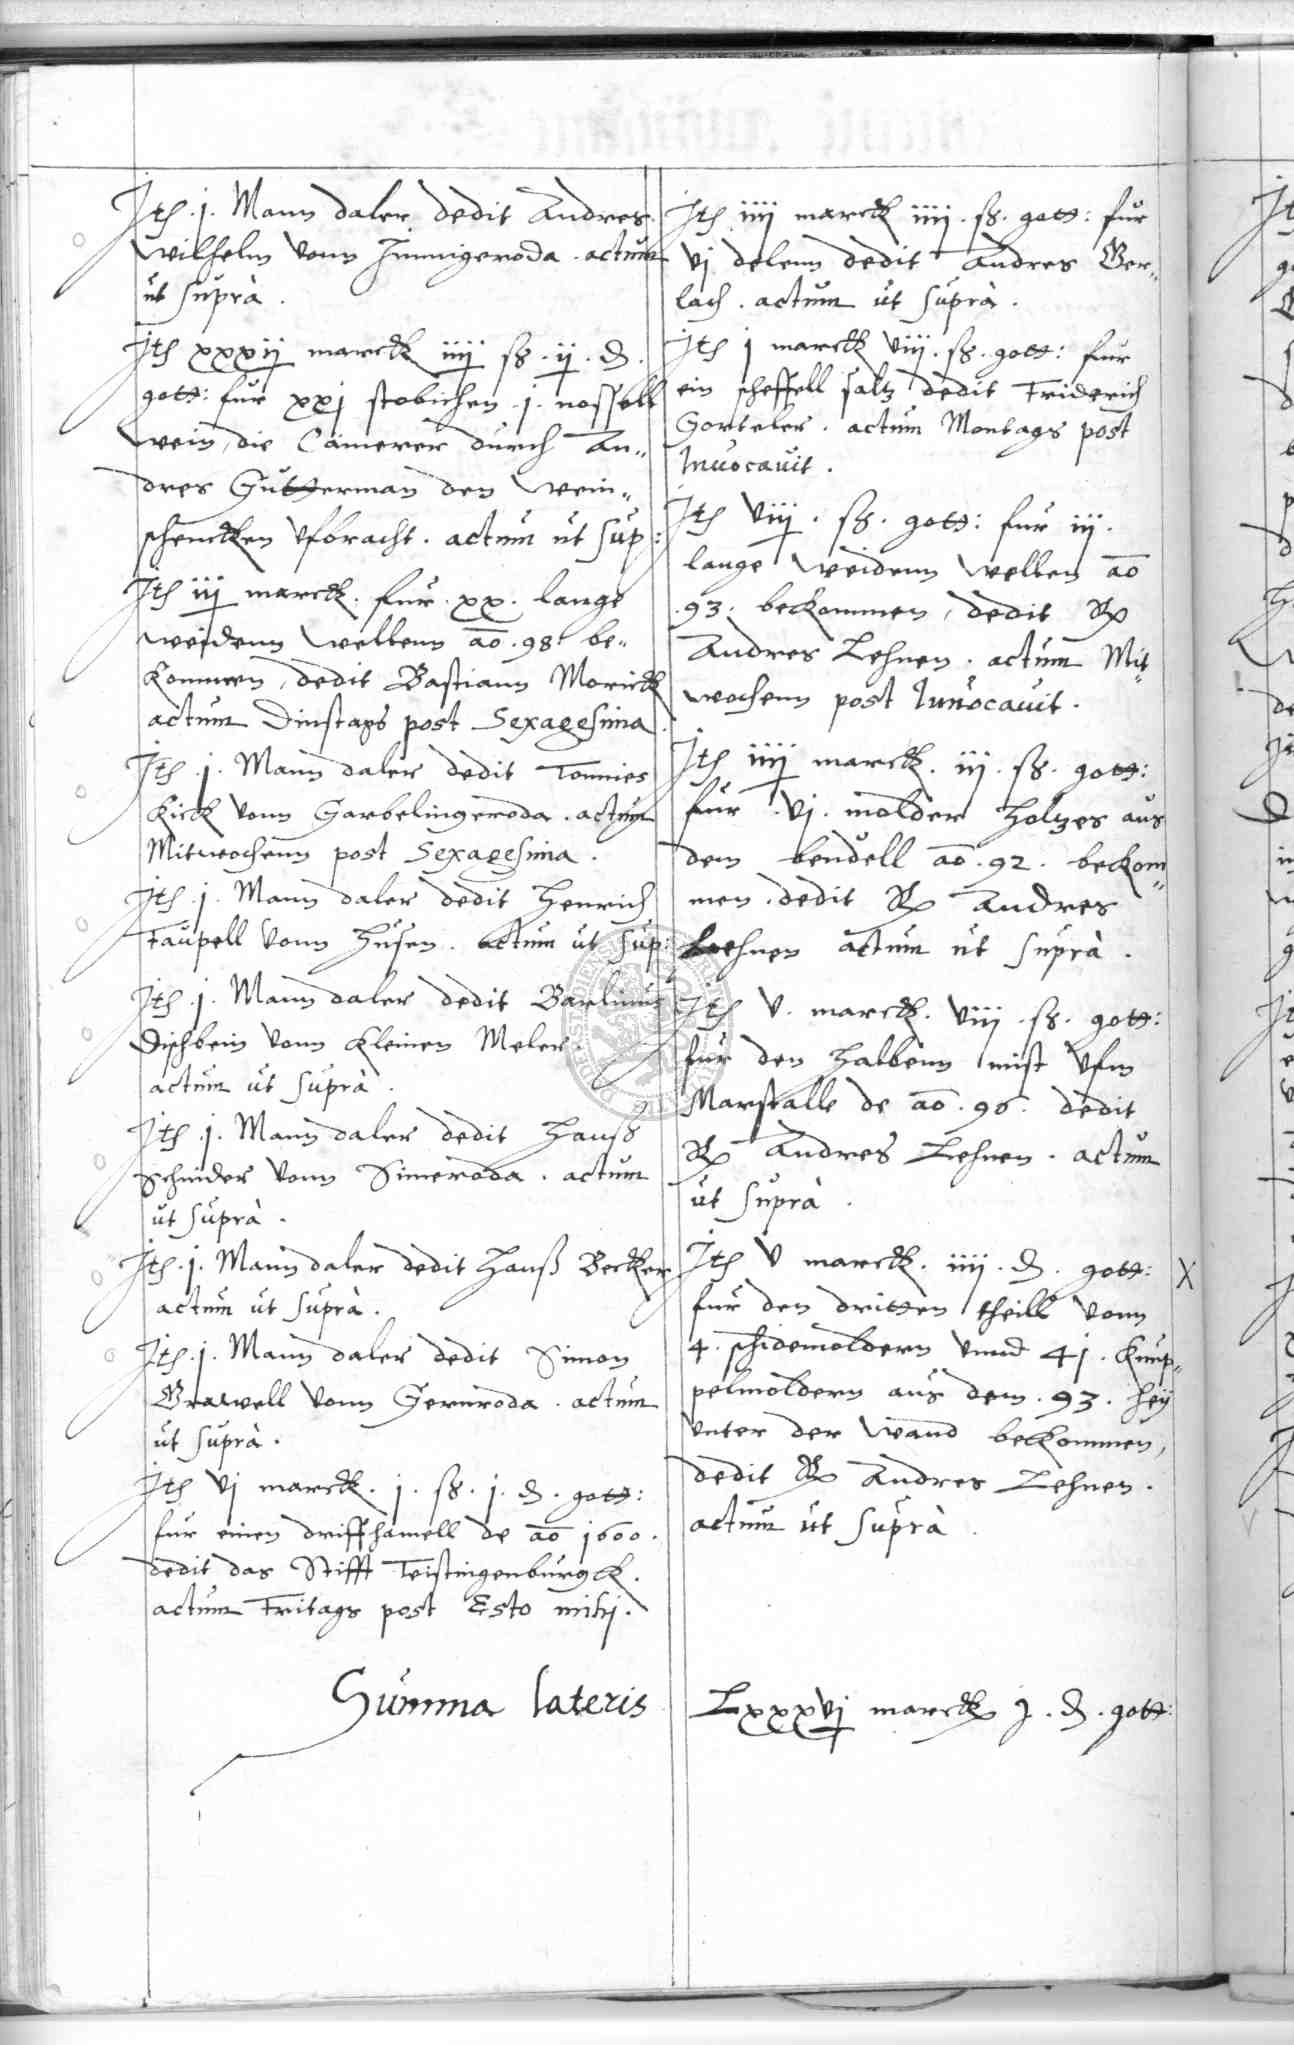 Jth .j. Mann daler dedit Andres
Wilhelm vonn Jmmigeroda . actum
ut suprà .
Jth xxxvij marck iiij ß . ij . d .
gott: fur xxj stobichen .j. nossell
wein, die Cämerer durch An„
dres Gutterman den wein„
schencken vfbracht . actum ut sup:
Jth iij marck . fur . xx . lange
weidenn wellenn ao . 98 be„
kommen, dedit Bastiann Morick
actum Dinstags post Sexagesima .
Jth .j. Mann daler dedit Tonnies
Kick vonn Garbelingeroda . actum
Mitwochenn post Sexagesima .
Jth .j. Mann daler dedit Henrich
Faupell vonn Husen . actum ut sup:
Jth .j. Mann daler dedit Barlinus
Dischbein vonn Kleinen Meler .
actum ut suprà .
Jth .j. Mann daler dedit Hanß
Schnider vonn Simeroda . actum
ut suprà .
Jth .j. Mann daler dedit Hanß Becker
actum ut suprà .
Jth .j. Mann daler dedit Simon
Grawell vonn Gernroda . actum
ut suprà .
Jth vj marck . j . ß . j . d . gott:
fur einen drifthamell de ao 1600 .
dedit das Stifft Teistingenburgk .
actum Fritags post Esto mihj .
Summa lateris
Jth iiij marck iiij . ß . gott: fur
vj delenn dedit Andres Ger„
lach . actum ut suprà .
Jth j marck viij . ß . gott: fur
ein scheffell saltz dedit Friderich
Gorteler . actum Montags post
Inuocauit .
Jth viij . ß . gott: fur iij .
lange weidenn wellen ao
. 93 . bekommen, dedit
Andres Lehnen . actum Mit„
wochenn post Inuocauit .
Jth iiij marck . iij . ß . gott:
fur . vj . molder holtzes aus
dem bendell ao . 92 . bekom„
men . dedit Andres
Lehnen actum ut suprà .
Jth v . marck . viij . ß . gott:
fur den halbenn mist vfm
Marstalle de ao . 96 . dedit
Andres Lehnen . actum
ut suprà .
Jth v marck . iiij . d . gott: X
fur den dritten theill vonn
4 . schidemoldern vnnd 41 . knup„
pelmoldern aus dem . 93 . hey
vnter der wand bekommen,
dedit Andres Lehnen .
actum ut suprà .
Lxxxvj marck j . d . gott: